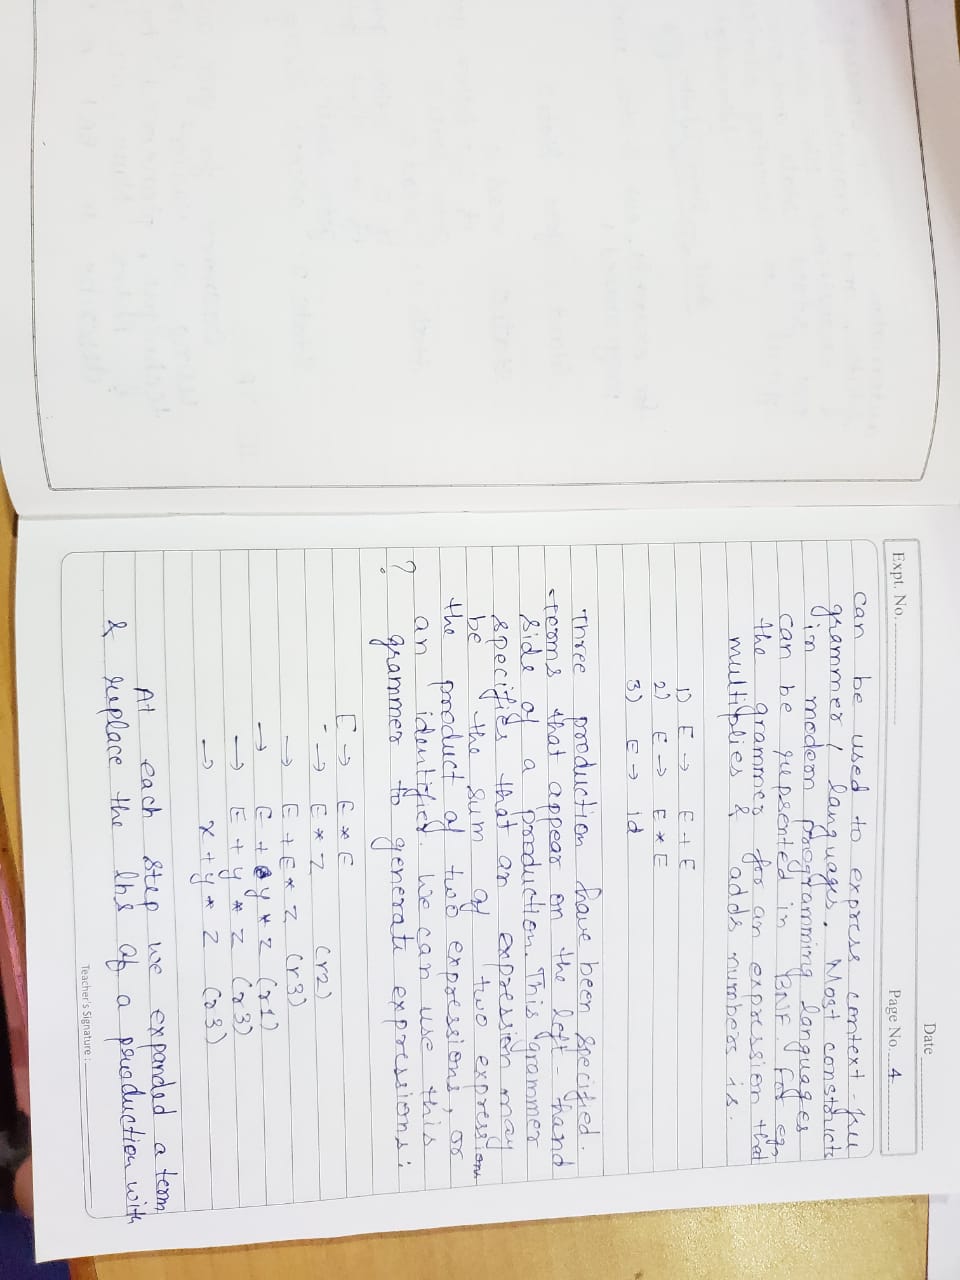 Date
Expt. No.
Page No. 4
can be used to express context-free
grammer, languages. Most constructs
in modern programming languages
can be repsented in BNF. for eg,
the grammer for an expression that
multiplies & adds numbers is.
1) E → E + E
2) E → E * E
3) E → id
three production have been specified.
terms that appear on the left-hand
side of a production. This grammer
specifies that an expression may
be the sum of two expressions
the product of two expressions, or
an identified. we can use this
? grammer to generate expressions:
E → E * E
→ E * Z (r2)
→ E + E * Z (r3)
→ E + y * Z (r1)
→ E + y * Z (r3)
→ x + y * Z (r3)
At each step we expanded a term
& replace the lhs of a production with
Teacher's Signature :